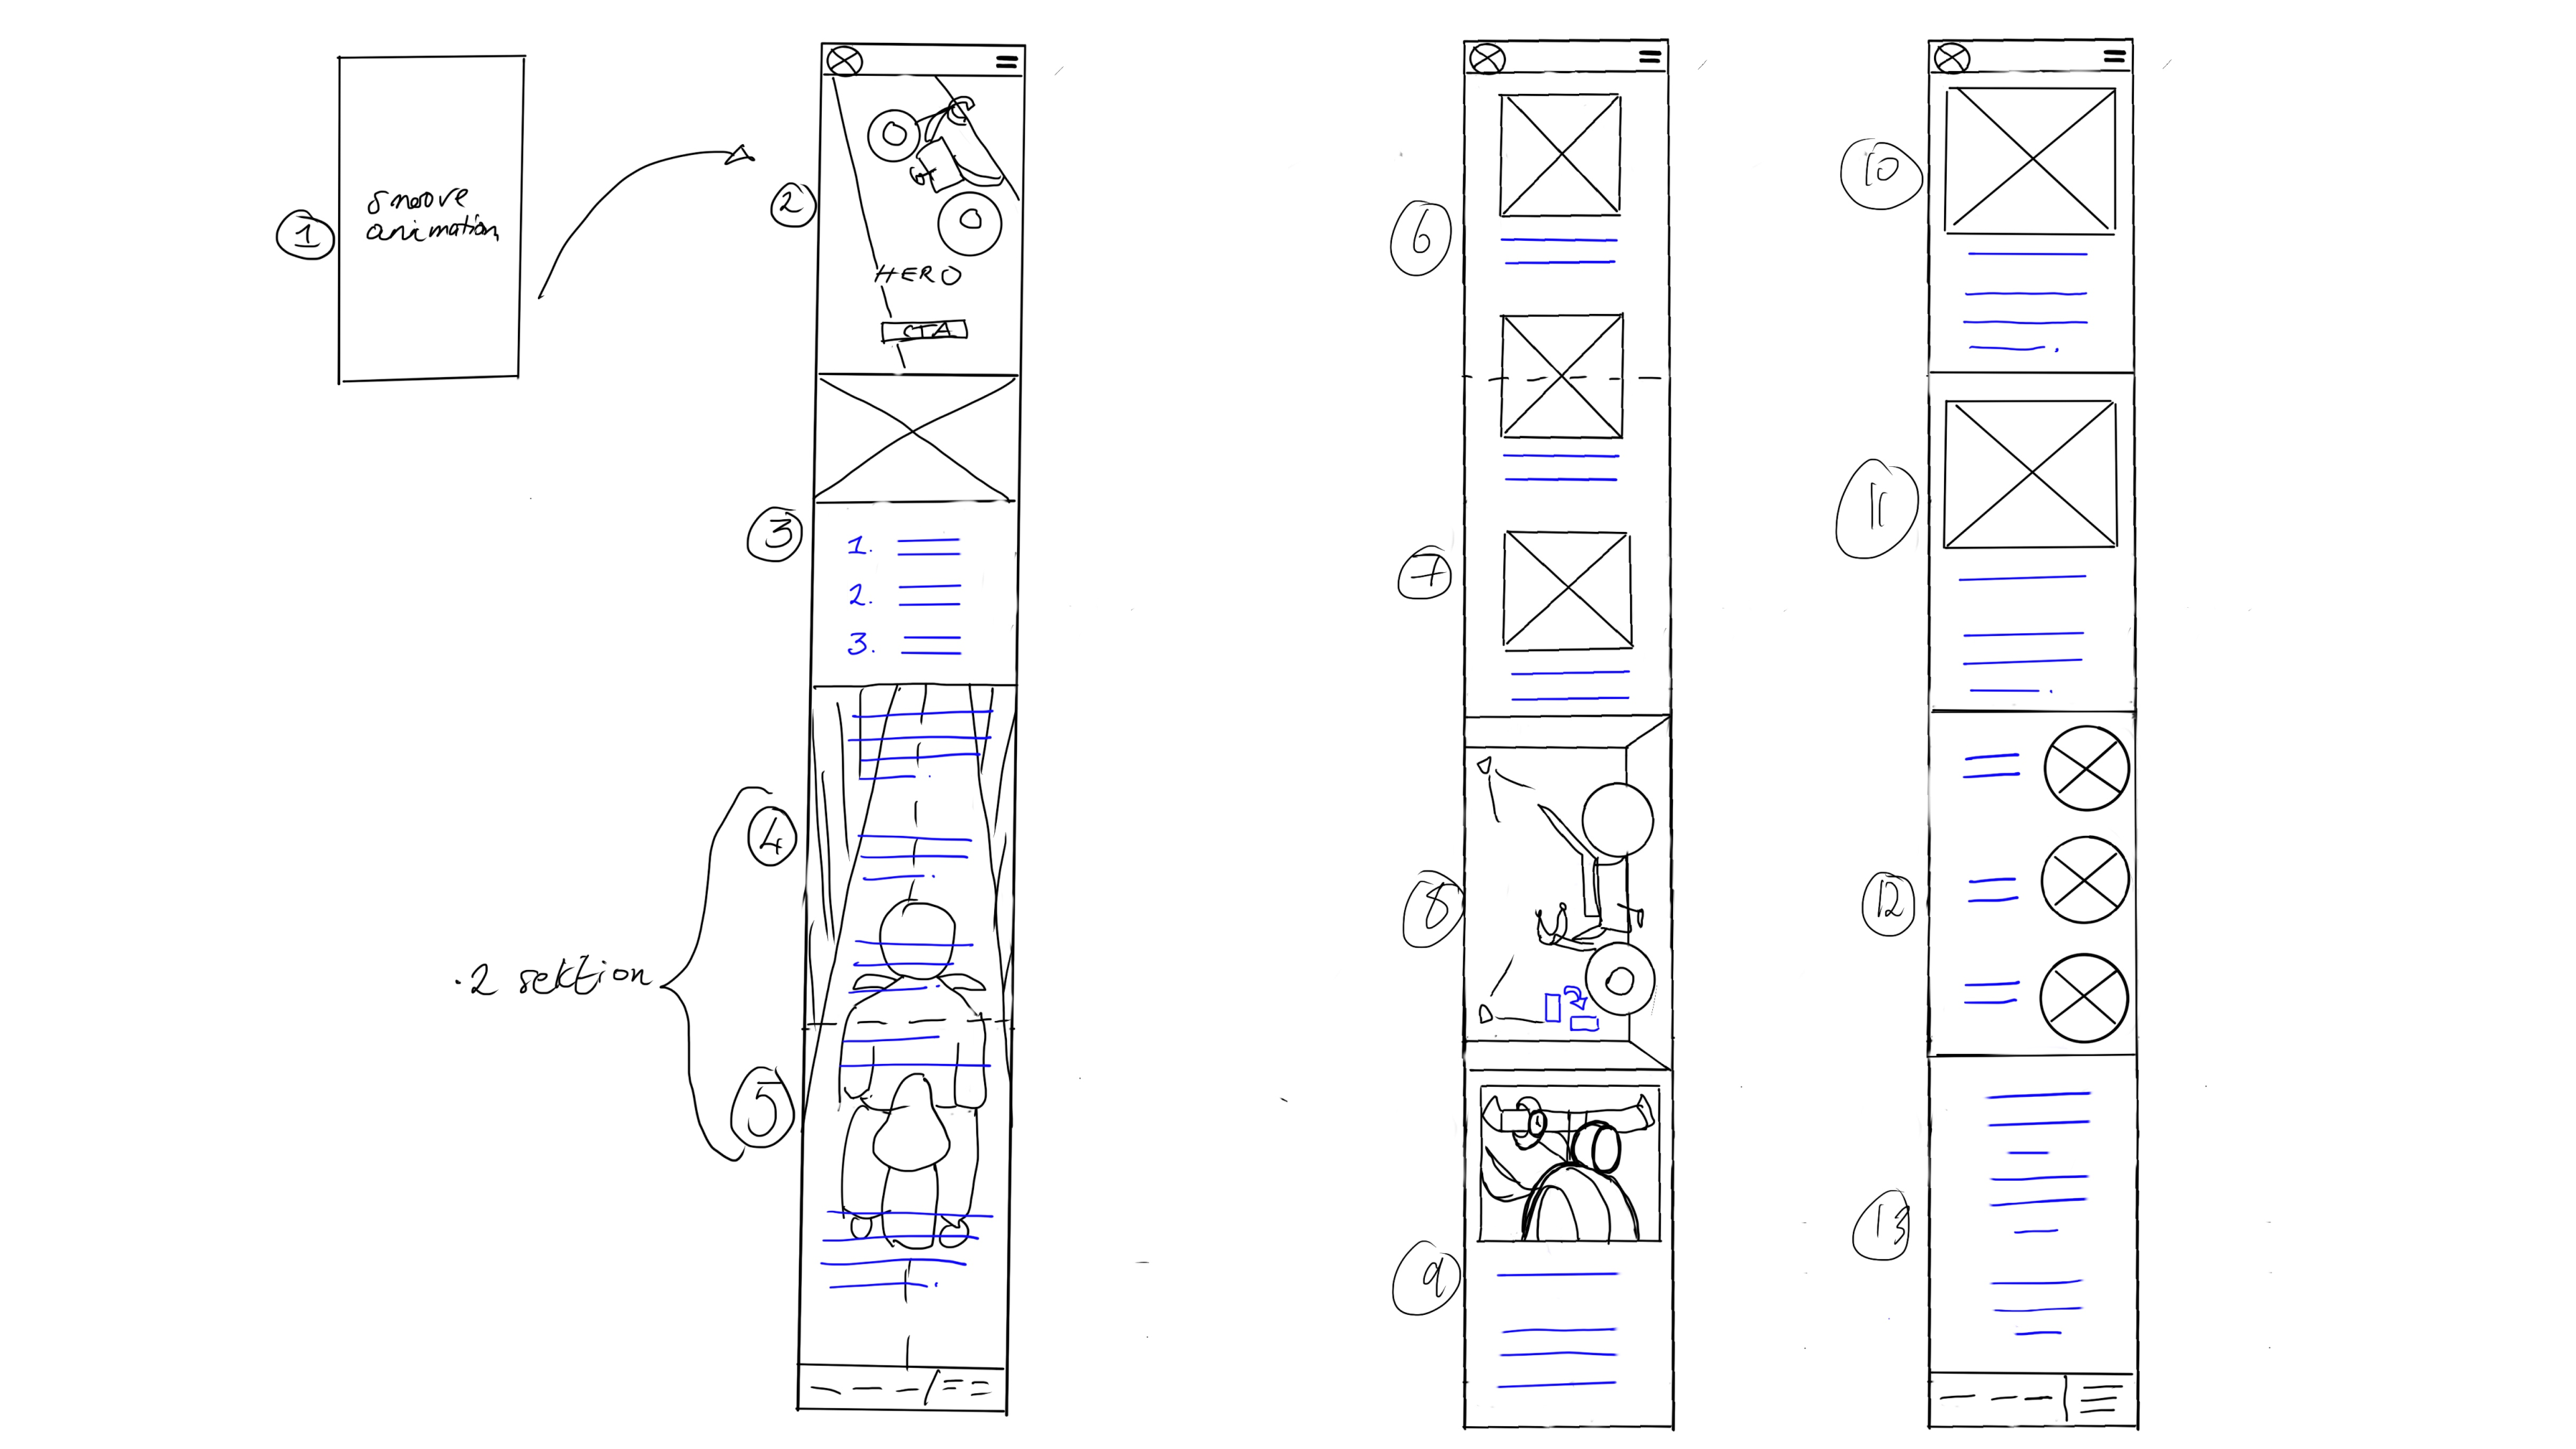 1
smoove
animation
2
HERO
CTA
3
1.
2.
3.
4
.2 sektion
5
6
7
8
9
10
11
12
13